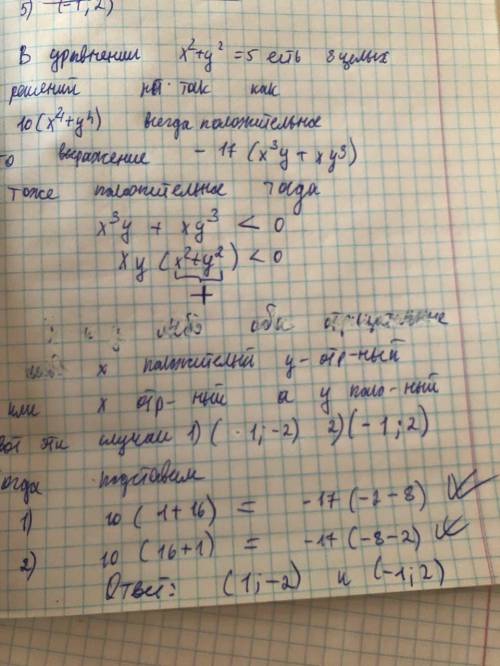 5) (-1; 2)
В уравнении x²+y² = 5 есть 8 целых
решений но так как
10(x⁴+y⁴) всегда положительное
то выражение - 17 (x³y + xy³)
тоже положительное тогда
x³y + xy³ < 0
xy (x²+y²) < 0
+
либо оба отрицательные
либо x положителый y-отр-ный
или x отр-ный а y поло-ный
вот эти случаи 1) ( 1; -2) 2) (-1; 2)
тогда подставим
1) 10 ( 1+16) = -17 (-2-8)
2) 10 (16+1) = -17 (-8-2)
Ответ: (1; -2) и (-1; 2)